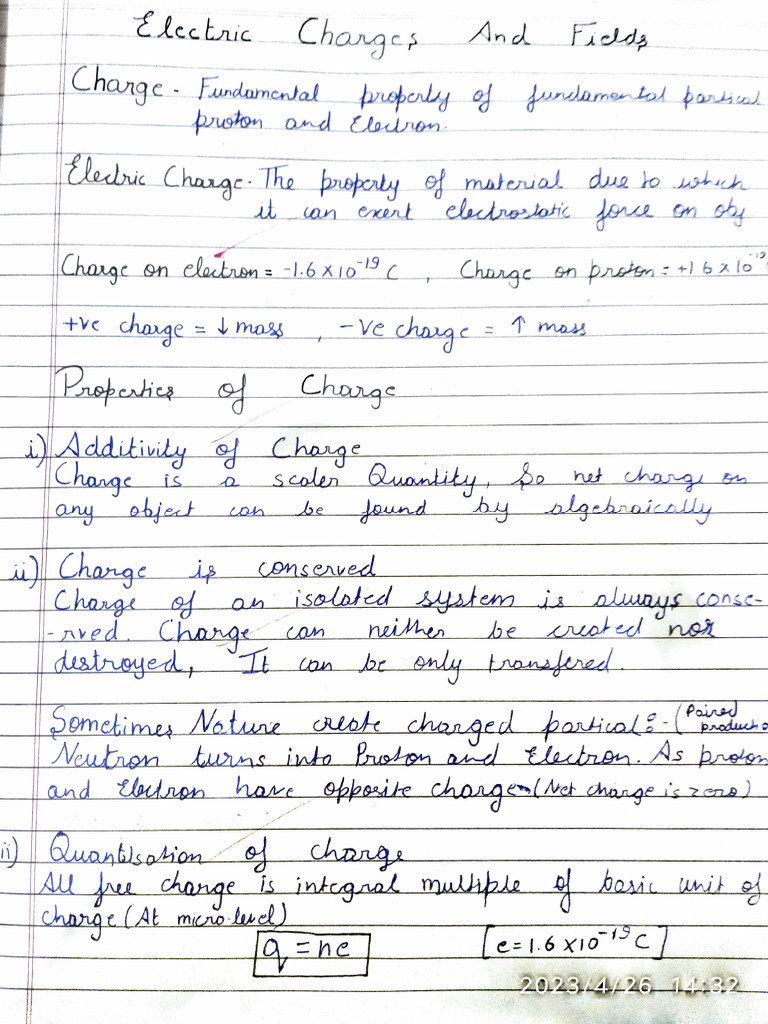 Electric Charges And Fields
Charge - Fundamental property of fundamental partical
proton and Electron.
Electric Charge - The property of material due to which
it can exert electrostatic force on obj
Charge on electron = -1.6 × 10⁻¹⁹ C , Charge on proton = +1.6 × 10⁻¹⁹
+ve charge = ↓ mass , -ve charge = ↑ mass
Properties of Charge
i) Additivity of Charge
Charge is a scaler Quantity, So net charge on
any object can be found by algebraically
ii) Charge is conserved
Charge of an isolated system is always conse-
-rved. Charge can neither be created nor
destroyed, It can be only transfered.
Sometimes Nature create charged partical :- (Paired
producti
Neutron turns into Proton and Electron. As proton
and Electron have opposite charge - (Net charge is zero)
ii) Quantisation of charge
All free charge is integral multiple of basic unit of
charge (At micro-level)
q = ne [e = 1.6 × 10⁻¹⁹ C]
2023/4/26 14:32